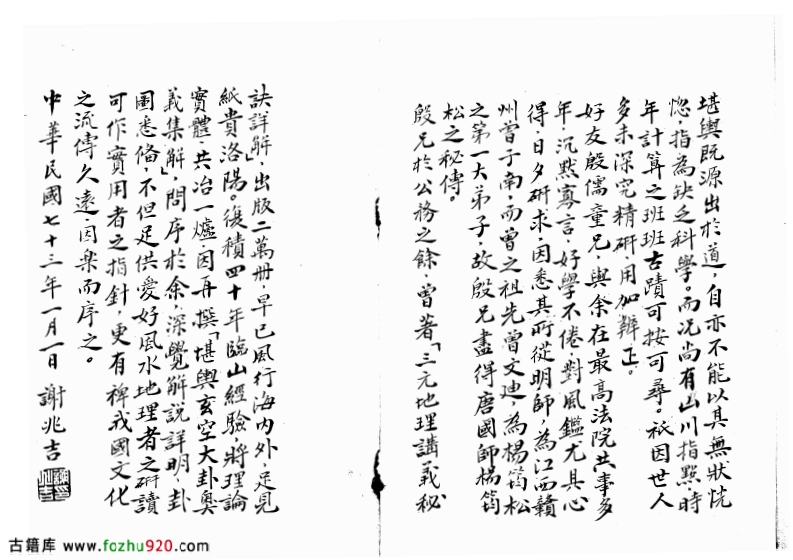 堪輿既源出於道，自亦不能以其無狀恍
惚指為缺乏科學。而况尚有山川指點，時
年計算之班班古蹟可按可尋。祇因世人
多未深究精研，用加辨正。
好友殷儒童兄，與余在最高法院共事多
年，沉默寡言，好學不倦，對風鑑尤具心
得，日夕研求，因悉其所從明師，為江西贛
州曾子南，而曾之祖先曾文迪，為楊筠松
之第一大弟子，故殷兄盡得唐國師楊筠
松之秘傳。
殷兄於公務之餘，曾著「三元地理講義秘
訣詳解」，出版二萬冊，早已風行海內外，足見
紙貴洛陽。復積四十年臨山經驗，將理論
實體，共冶一爐，因再撰「堪輿玄空大卦奧
義集解」，問序於余，深覺解說詳明，卦
圖悉備，不但足供愛好風水地理者之研讀
可作實用者之指針，更有裨我國文化
之流傳久遠，因樂而序之。
中華民國七十三年一月一日 謝兆吉
古籍库 www.fozhu920.com